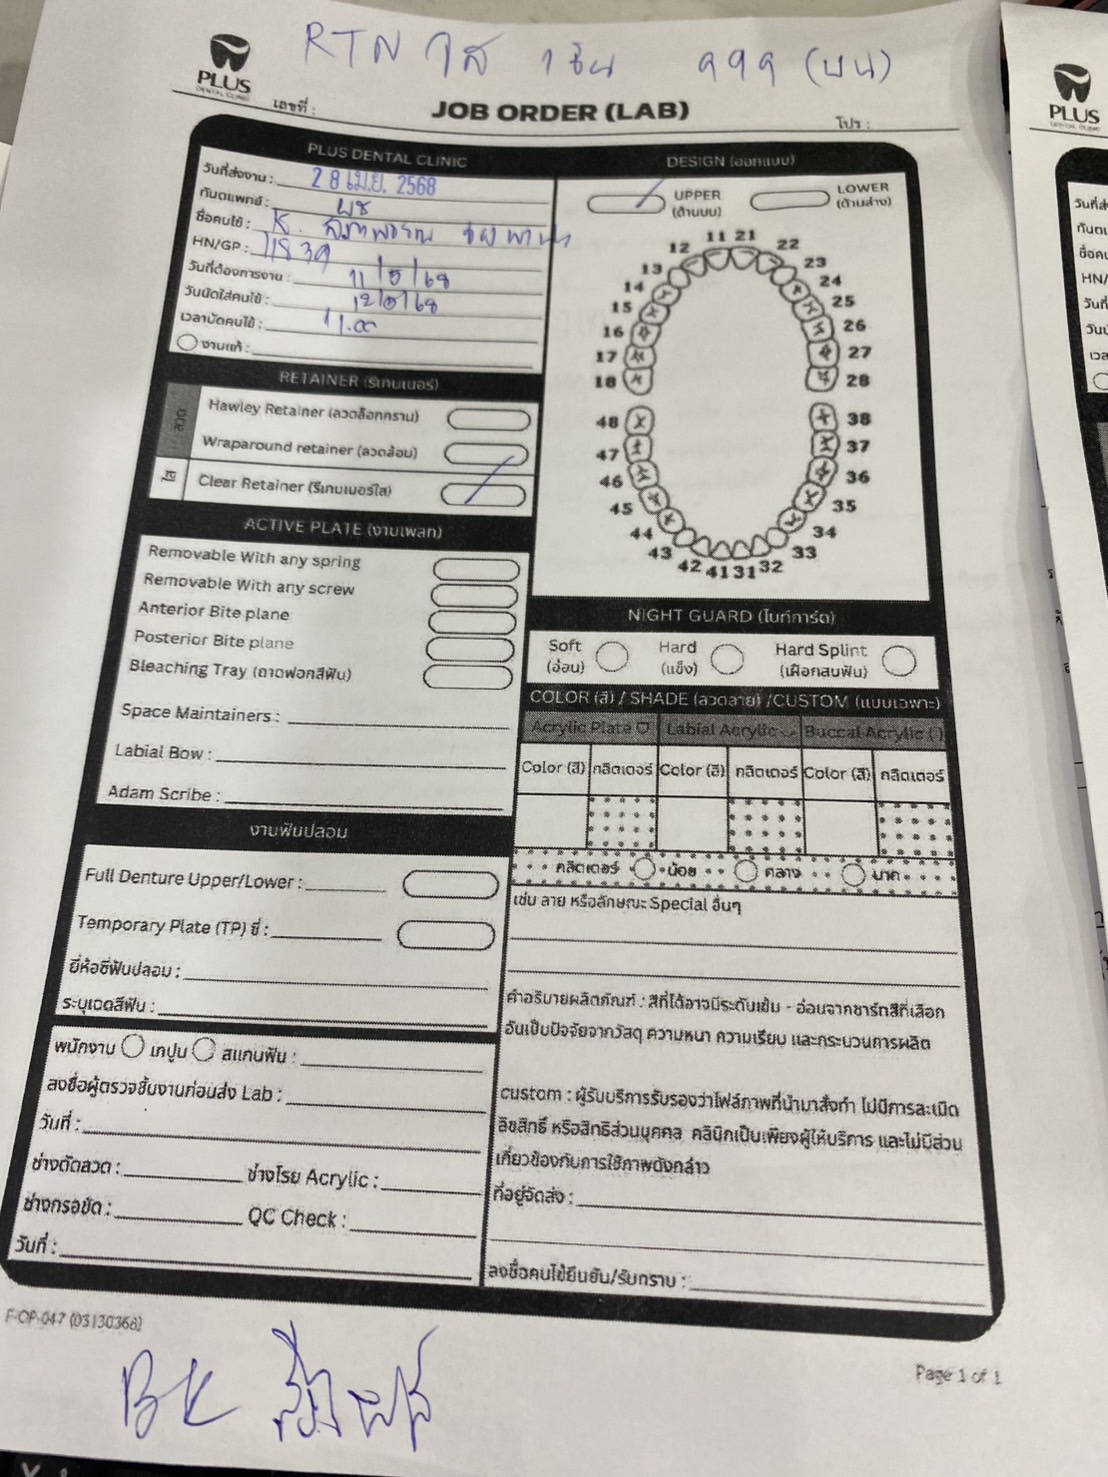 RTN ใส 1 ชิ้น 999 (บน)
PLUS
DENTAL CLINIC
เลขที่ :
JOB ORDER (LAB)
โปร :
PLUS DENTAL CLINIC
วันที่ส่งงาน : 28 เม.ย. 2568
ทันตแพทย์ :
ชื่อคนไข้ : K.
HN/GP : 11839
วันที่ต้องการงาน : 11/5/68
วันนัดใส่คนไข้ : 12/5/68
เวลานัดคนไข้ : 11.00
งานแก้ :
RETAINER (รีเทนเนอร์)
ลวด
Hawley Retainer (ลวดล็อกกราม)
Wraparound retainer (ลวดล้อม)
ใส
Clear Retainer (รีเทนเนอร์ใส)
ACTIVE PLATE (งานเพลท)
Removable With any spring
Removable With any screw
Anterior Bite plane
Posterior Bite plane
Bleaching Tray (ถาดฟอกสีฟัน)
Space Maintainers :
Labial Bow :
Adam Scribe :
งานฟันปลอม
Full Denture Upper/Lower :
Temporary Plate (TP) ซี่ :
ยี่ห้อซี่ฟันปลอม :
ระบุเฉดสีฟัน :
พนักงาน เทปูน สแกนฟัน :
ลงชื่อผู้ตรวจชิ้นงานก่อนส่ง Lab :
วันที่ :
ช่างดัดลวด : ช่างโรย Acrylic :
ช่างกรอขัด : QC Check :
วันที่ :
DESIGN (ออกแบบ)
UPPER
(ด้านบน)
LOWER
(ด้านล่าง)
11 21
12 22
13 23
14 24
15 25
16 26
17 27
18 28
48 38
47 37
46 36
45 35
44 34
43 33
42 41 31 32
NIGHT GUARD (ไนท์การ์ด)
Soft
(อ่อน)
Hard
(แข็ง)
Hard Splint
(เฝือกสบฟัน)
COLOR (สี) / SHADE (ลวดลาย) /CUSTOM (แบบเฉพาะ)
Acrylic Plate Labial Acrylic Buccal Acrylic ( )
Color (สี) กลิตเตอร์ Color (สี) กลิตเตอร์ Color (สี) กลิตเตอร์
กลิตเตอร์ น้อย กลาง มาก
เช่น ลาย หรือลักษณะ Special อื่นๆ
คำอธิบายผลิตภัณฑ์ : สีที่ได้อาจมีระดับเข้ม - อ่อนจากชาร์ตสีที่เลือก
อันเป็นปัจจัยจากวัสดุ ความหนา ความเรียบ และกระบวนการผลิต
custom : ผู้รับบริการรับรองว่าไฟล์ภาพที่นำมาสั่งทำ ไม่มีการละเมิด
ลิขสิทธิ์ หรือสิทธิส่วนบุคคล คลินิกเป็นเพียงผู้ให้บริการ และไม่มีส่วน
เกี่ยวข้องกับการใช้ภาพดังกล่าว
ที่อยู่จัดส่ง :
ลงชื่อคนไข้ยืนยัน/รับทราบ :
F-OP-047 (03130368)
Page 1 of 1
BK
PLUS
DENTAL CLINIC
HN/